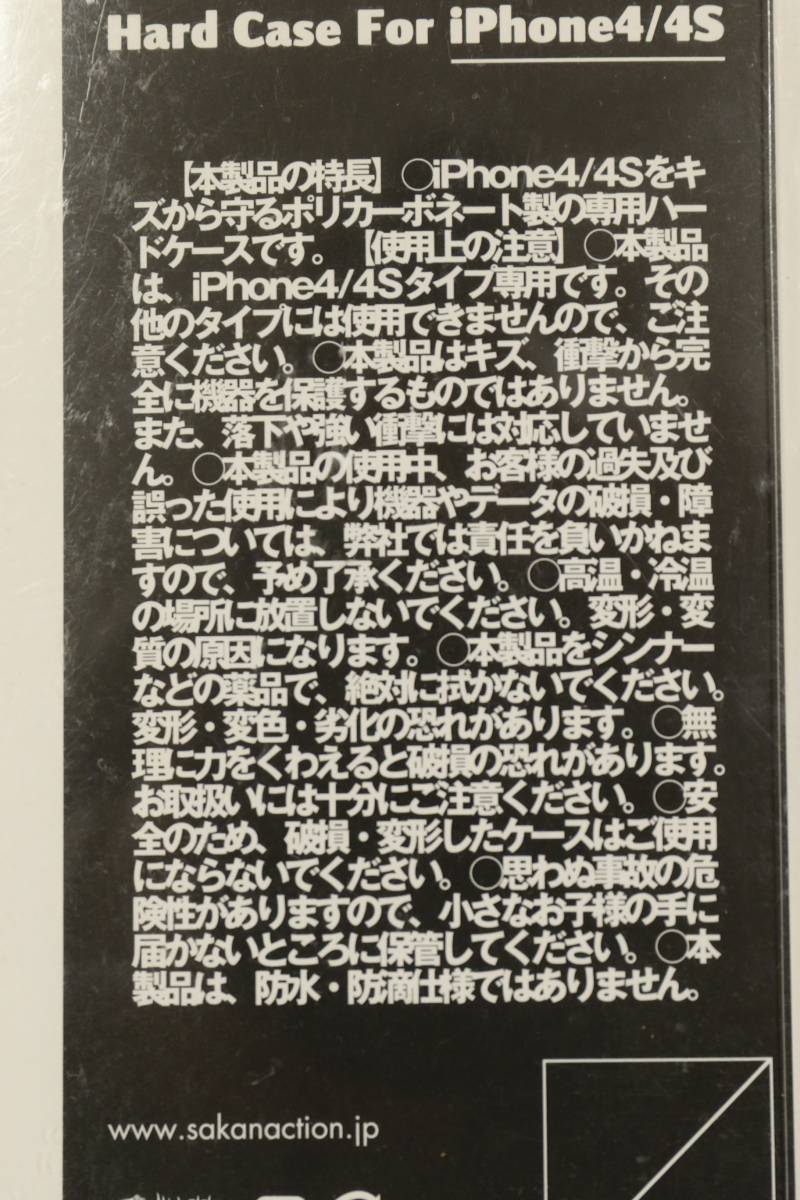 Hard Case For iPhone4/4S
【本製品の特長】 ○iPhone4/4Sをキ
ズから守るポリカーボネート製の専用ハー
ドケースです。 【使用上の注意】 ○本製品
は、iPhone4/4Sタイプ専用です。その
他のタイプには使用できませんので、ご注
意ください。○本製品はキズ、衝撃から完
全に機器を保護するものではありません。
また、落下や強い衝撃には対応していませ
ん。○本製品の使用中、お客様の過失及び
誤った使用により機器やデータの破損・障
害については、弊社では責任を負いかねま
すので、予め了承ください。○高温・冷温
の場所に放置しないでください。変形・変
質の原因になります。○本製品をシンナー
などの薬品で、絶対に拭かないでください。
変形・変色・劣化の恐れがあります。○無
理に力をくわえると破損の恐れがあります。
お取扱いには十分にご注意ください。○安
全のため、破損・変形したケースはご使用
にならないでください。○思わぬ事故の危
険性がありますので、小さなお子様の手に
届かないところに保管してください。○本
製品は、防水・防滴仕様ではありません。
www.sakanaction.jp